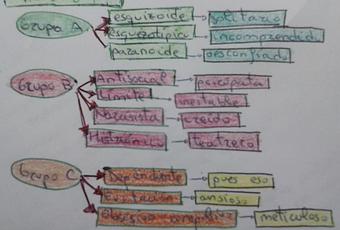 Grupo A
esquizoide → solitario
esquizotípico → incomprendido
paranoide → desconfiado
Grupo B
Antisocial → psicópata
Límite → inestable
Narcisista → creído
Histriónico → teatrero
Grupo C
Dependiente → pues eso
Evitación → ansioso
Obsesivo compulsivo → meticuloso